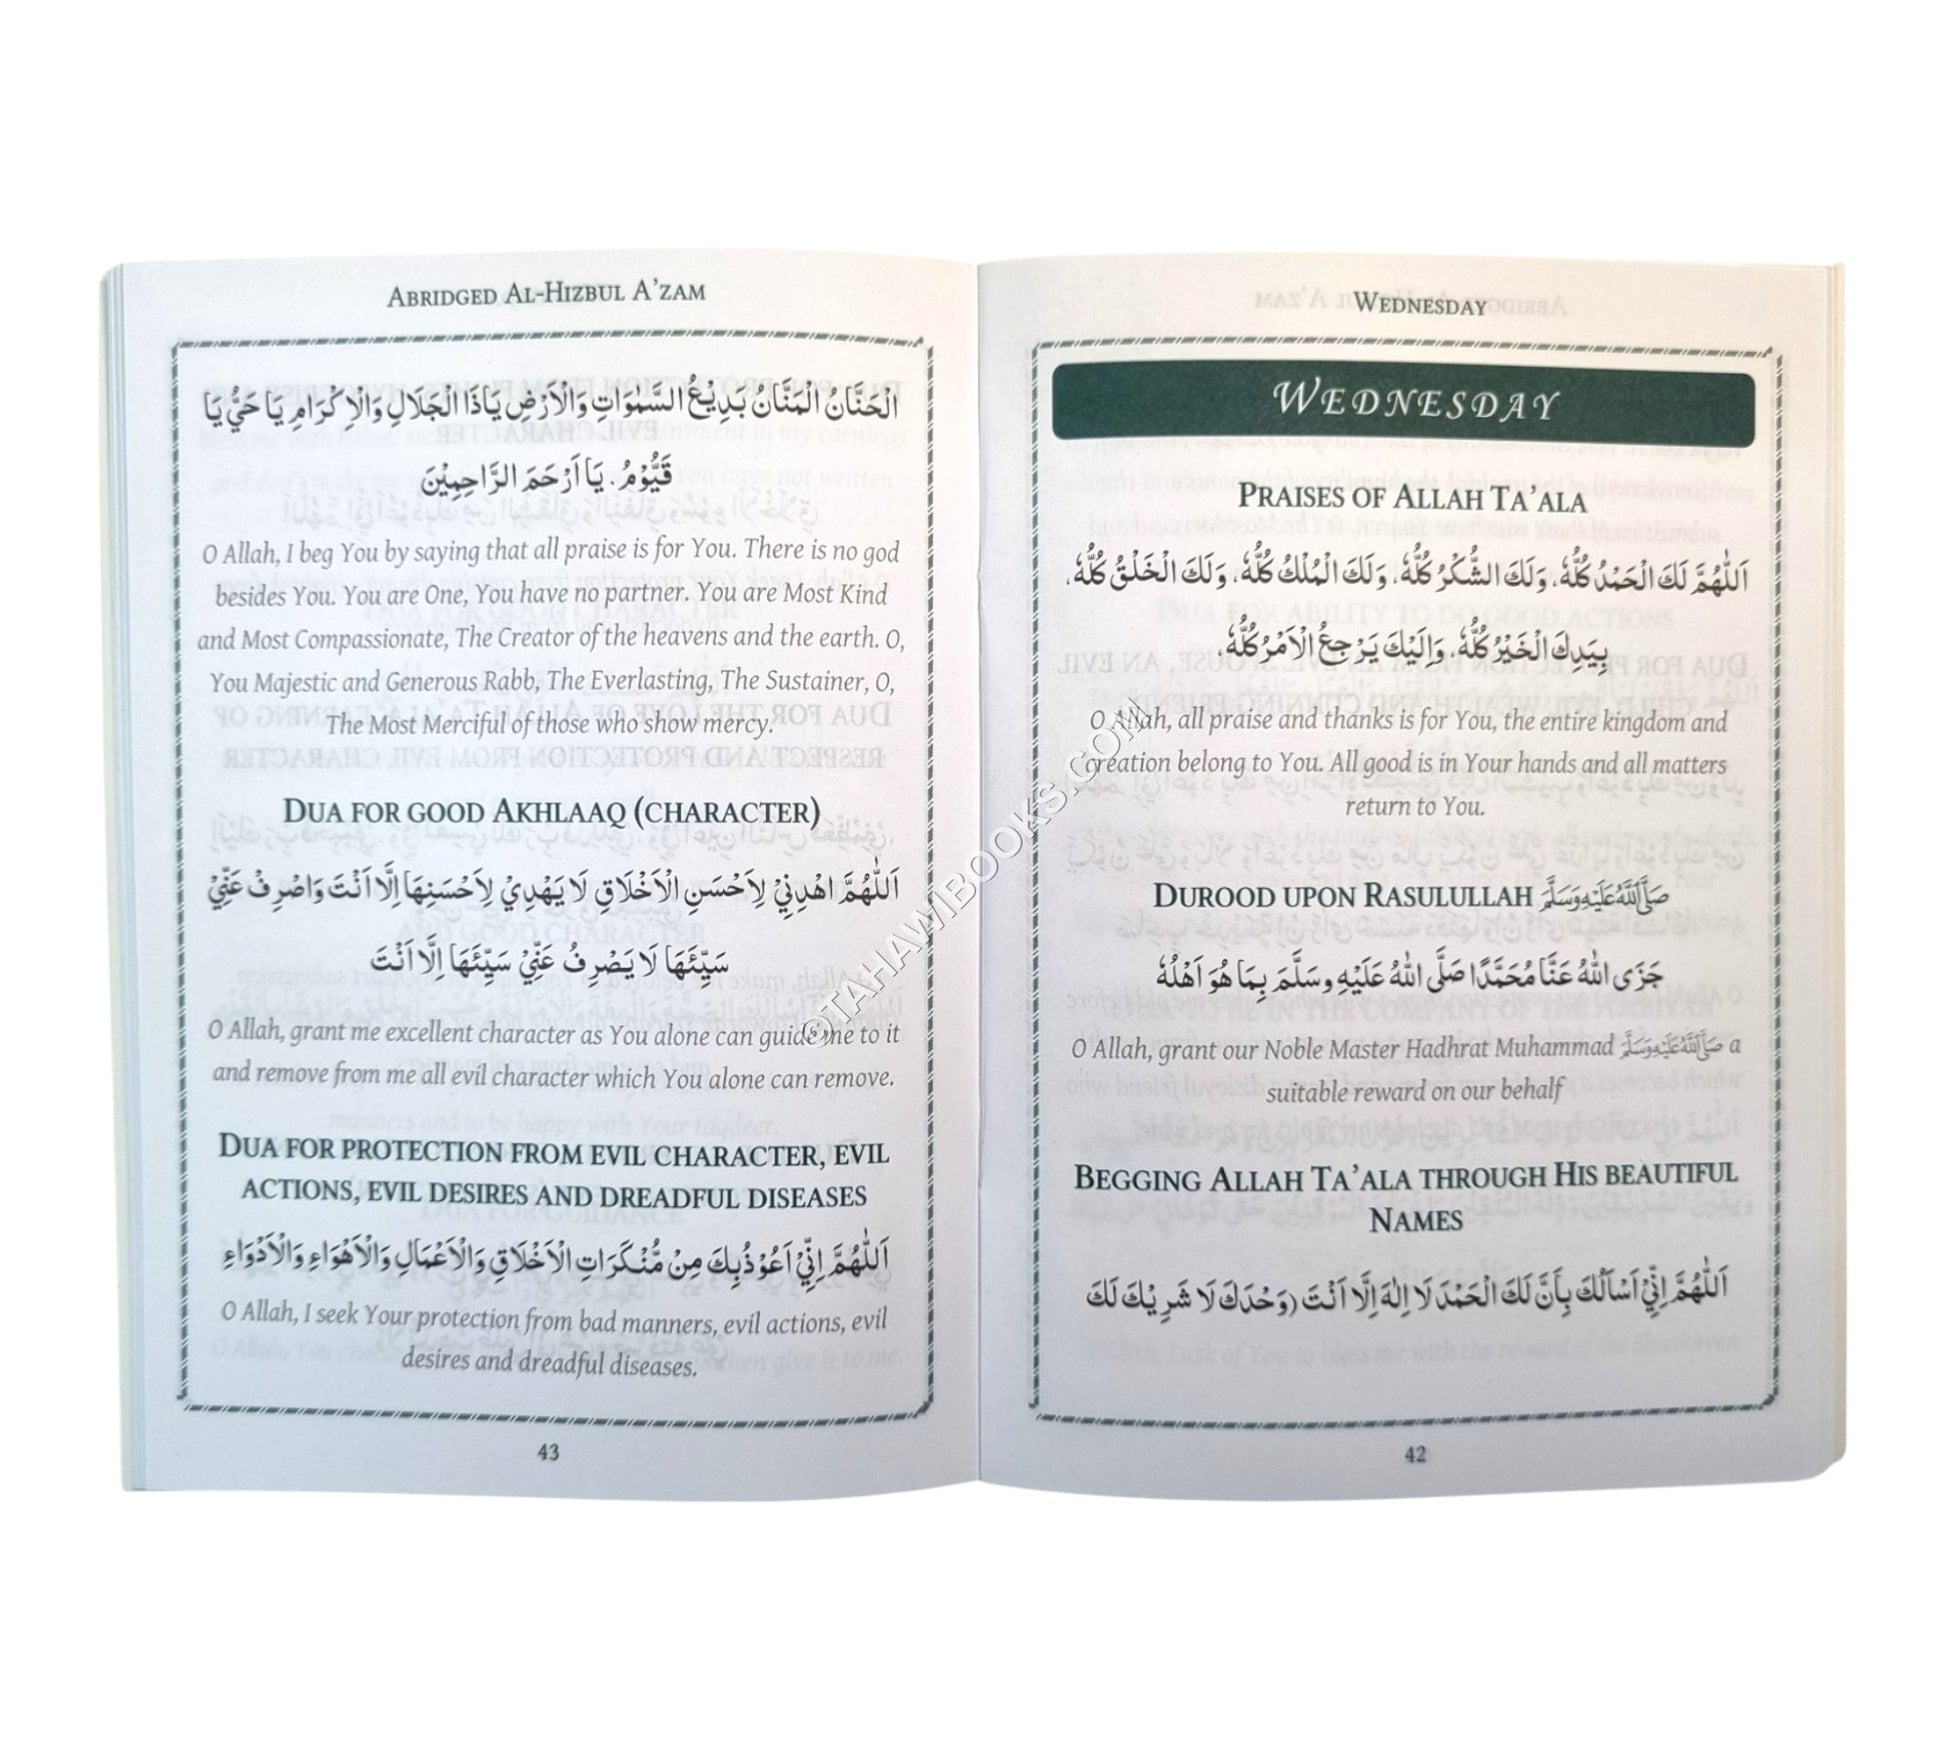 WEDNESDAY
WEDNESDAY
PRAISES OF ALLAH TA’ALA
اَللّٰهُمَّ لَكَ الْحَمْدُ كُلُّهٗ، وَلَكَ الشُّكْرُ كُلُّهٗ، وَلَكَ الْمُلْكُ كُلُّهٗ، وَلَكَ الْخَلْقُ كُلُّهٗ،
بِيَدِكَ الْخَيْرُ كُلُّهٗ، وَاِلَيْكَ يَرْجِعُ الْاَمْرُ كُلُّهٗ،
O Allah, all praise and thanks is for You, the entire kingdom and
creation belong to You. All good is in Your hands and all matters
return to You.
DUROOD UPON RASULULLAH صَلَّى اللّٰهُ عَلَيْهِ وَسَلَّمَ
جَزَى اللّٰهُ عَنَّا مُحَمَّدًا صَلَّى اللّٰهُ عَلَيْهِ وسَلَّمَ بِمَا هُوَ اَهْلُهٗ
O Allah, grant our Noble Master Hadhrat Muhammad صَلَّى اللّٰهُ عَلَيْهِ وَسَلَّمَ a
suitable reward on our behalf
BEGGING ALLAH TA’ALA THROUGH HIS BEAUTIFUL
NAMES
اَللّٰهُمَّ اِنِّيْ اَسْاَلُكَ بِاَنَّ لَكَ الْحَمْدَ لَا اِلٰهَ اِلَّا اَنْتَ (وَحْدَكَ لَا شَرِيْكَ لَكَ
42
ABRIDGED AL-HIZBUL A’ZAM
الْحَنَّانُ الْمَنَّانُ بَدِيْعُ السَّمٰوَاتِ وَالْاَرْضِ يَاذَا الْجَلَالِ وَالْاِكْرَامِ يَا حَيُّ يَا
قَيُّوْمُ. يَا اَرْحَمَ الرَّاحِمِيْنَ
O Allah, I beg You by saying that all praise is for You. There is no god
besides You. You are One, You have no partner. You are Most Kind
and Most Compassionate, The Creator of the heavens and the earth. O,
You Majestic and Generous Rabb, The Everlasting, The Sustainer, O,
The Most Merciful of those who show mercy.
DUA FOR GOOD AKHLAAQ (CHARACTER)
اَللّٰهُمَّ اهْدِنِيْ لِاَحْسَنِ الْاَخْلَاقِ لَا يَهْدِيْ لِاَحْسَنِهَا اِلَّا اَنْتَ وَاصْرِفْ عَنِّيْ
سَيِّئَهَا لَا يَصْرِفُ عَنِّيْ سَيِّئَهَا اِلَّا اَنْتَ
O Allah, grant me excellent character as You alone can guide me to it
and remove from me all evil character which You alone can remove.
DUA FOR PROTECTION FROM EVIL CHARACTER, EVIL
ACTIONS, EVIL DESIRES AND DREADFUL DISEASES
اَللّٰهُمَّ اِنِّيْ اَعُوْذُبِكَ مِنْ مُّنْكَرَاتِ الْاَخْلَاقِ وَالْاَعْمَالِ وَالْاَهْوَاءِ وَالْاَدْوَاءِ
O Allah, I seek Your protection from bad manners, evil actions, evil
desires and dreadful diseases.
43
©TAHAWIBOOKS.COM